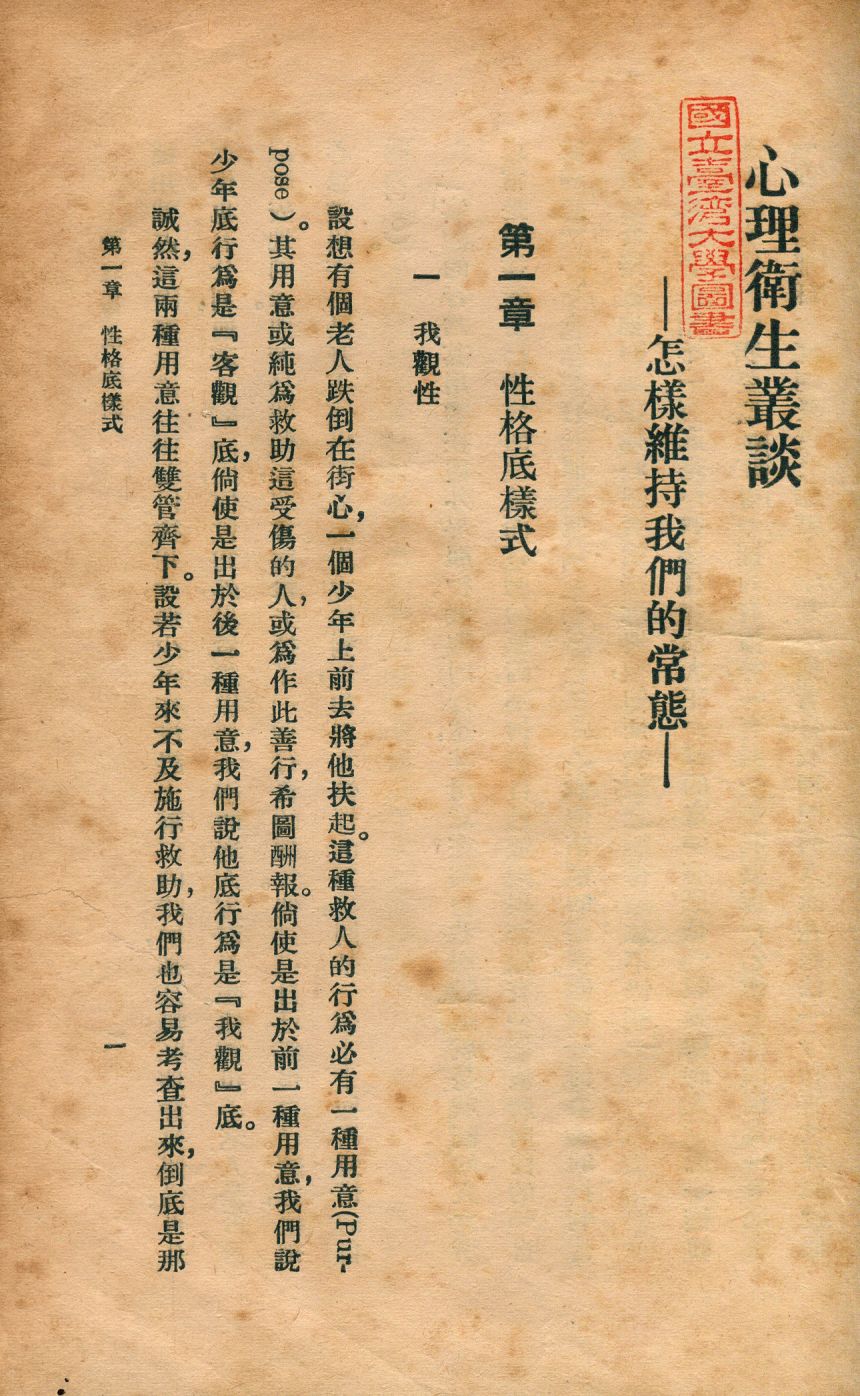 心理衛生叢談
國立臺灣大學圖書
——怎樣維持我們的常態——
第一章　性格底樣式
一　我觀性
設想有個老人跌倒在街心，一個少年上前去將他扶起。這種救人的行爲必有一種用意(Pur-
pose)。其用意或純爲救助這受傷的人，或爲作此善行，希圖酬報。倘使是出於前一種用意，我們說
少年底行爲是『客觀』底，倘使是出於後一種用意，我們說他底行爲是『我觀』底。
誠然，這兩種用意往往雙管齊下。設若少年來不及施行救助，我們也容易考查出來，倒底是那
第一章　性格底樣式
一